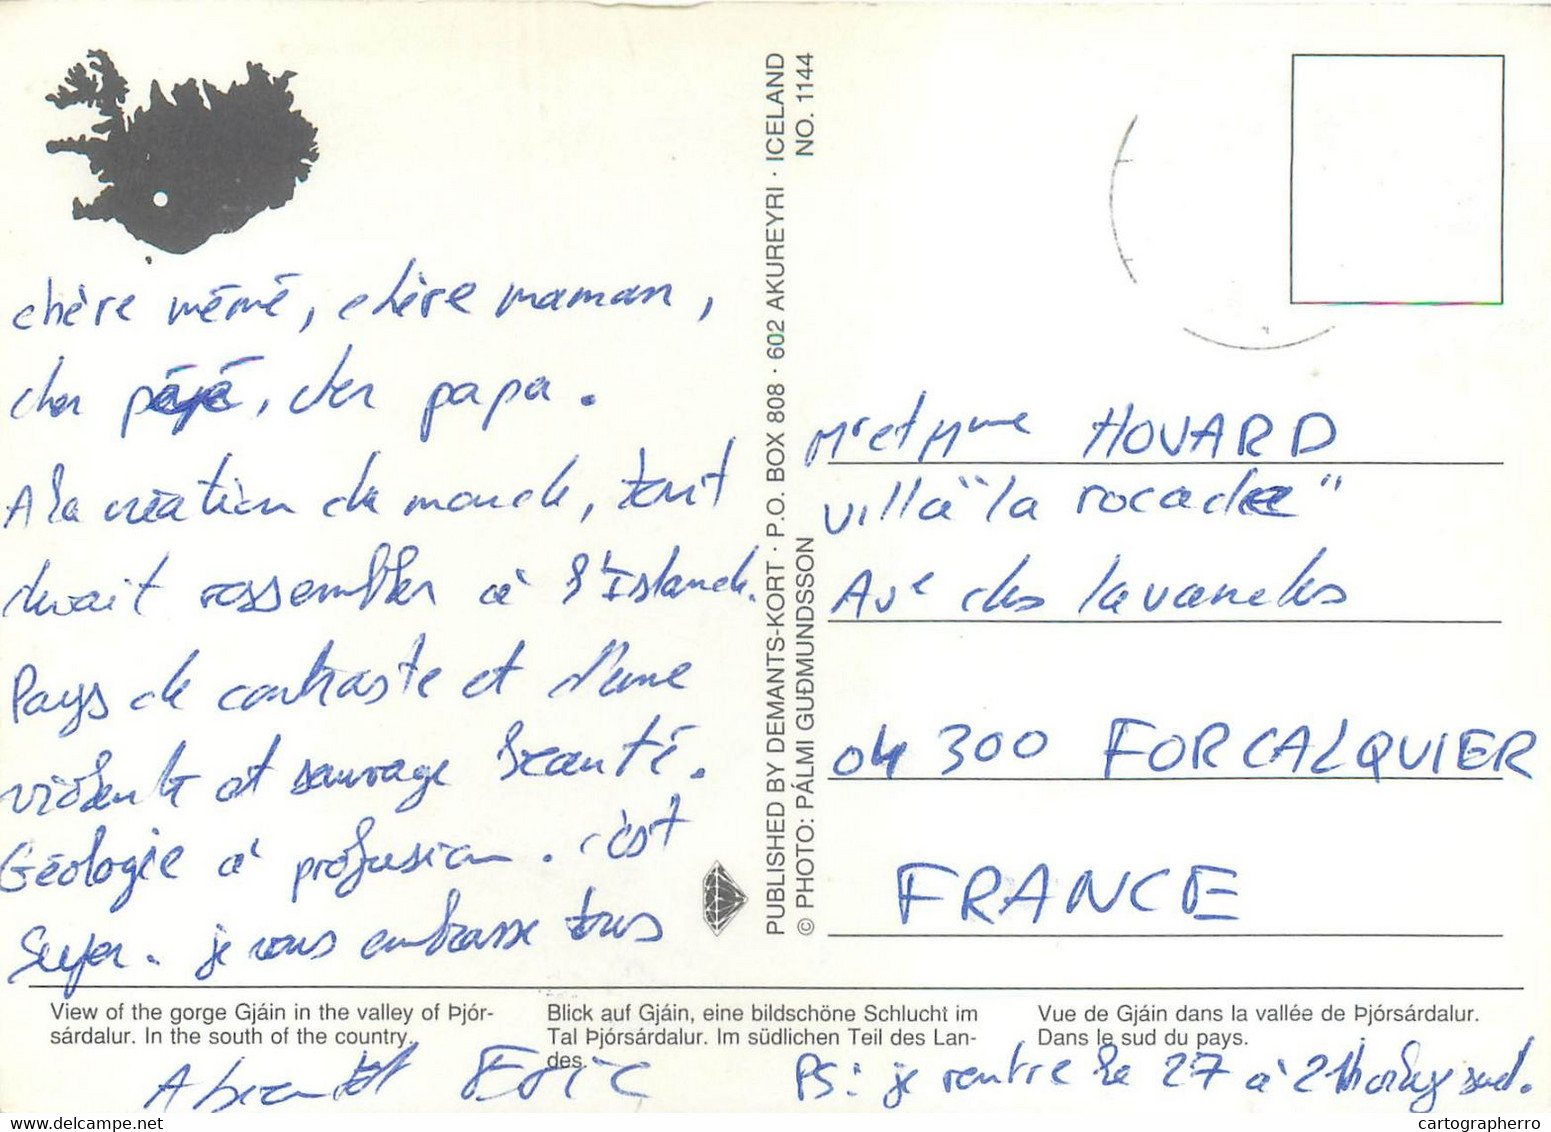 chère mémé, chère maman,
cher pépé, cher papa.
A la création du monde, tout
devait ressembler à l'Islande.
Pays de contraste et d'une
violente et sauvage beauté.
Géologie à profusion. c'est
super. je vous embrasse tous
A bientôt Eric
PS: je rentre le 27 à 21h orly sud.
PUBLISHED BY DEMANTS-KORT · P.O. BOX 808 · 602 AKUREYRI · ICELAND
© PHOTO: PÁLMI GUÐMUNDSSON
NO. 1144
Mr et Mme HOVARD
villa "la rocade"
Ave des lavandes
04 300 FORCALQUIER
FRANCE
View of the gorge Gjáin in the valley of Þjór-
sárdalur. In the south of the country.
Blick auf Gjáin, eine bildschöne Schlucht im
Tal Þjórsárdalur. Im südlichen Teil des Lan-
des.
Vue de Gjáin dans la vallée de Þjórsárdalur.
Dans le sud du pays.
cartographerro